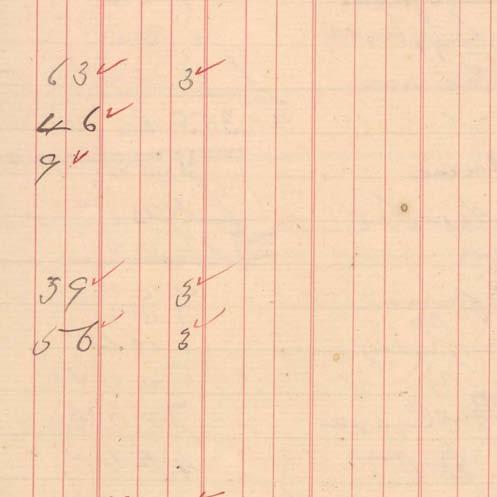 63 ✓ 3 ✓
46 ✓
9 ✓
39 ✓ 3 ✓
56 ✓ 3 ✓